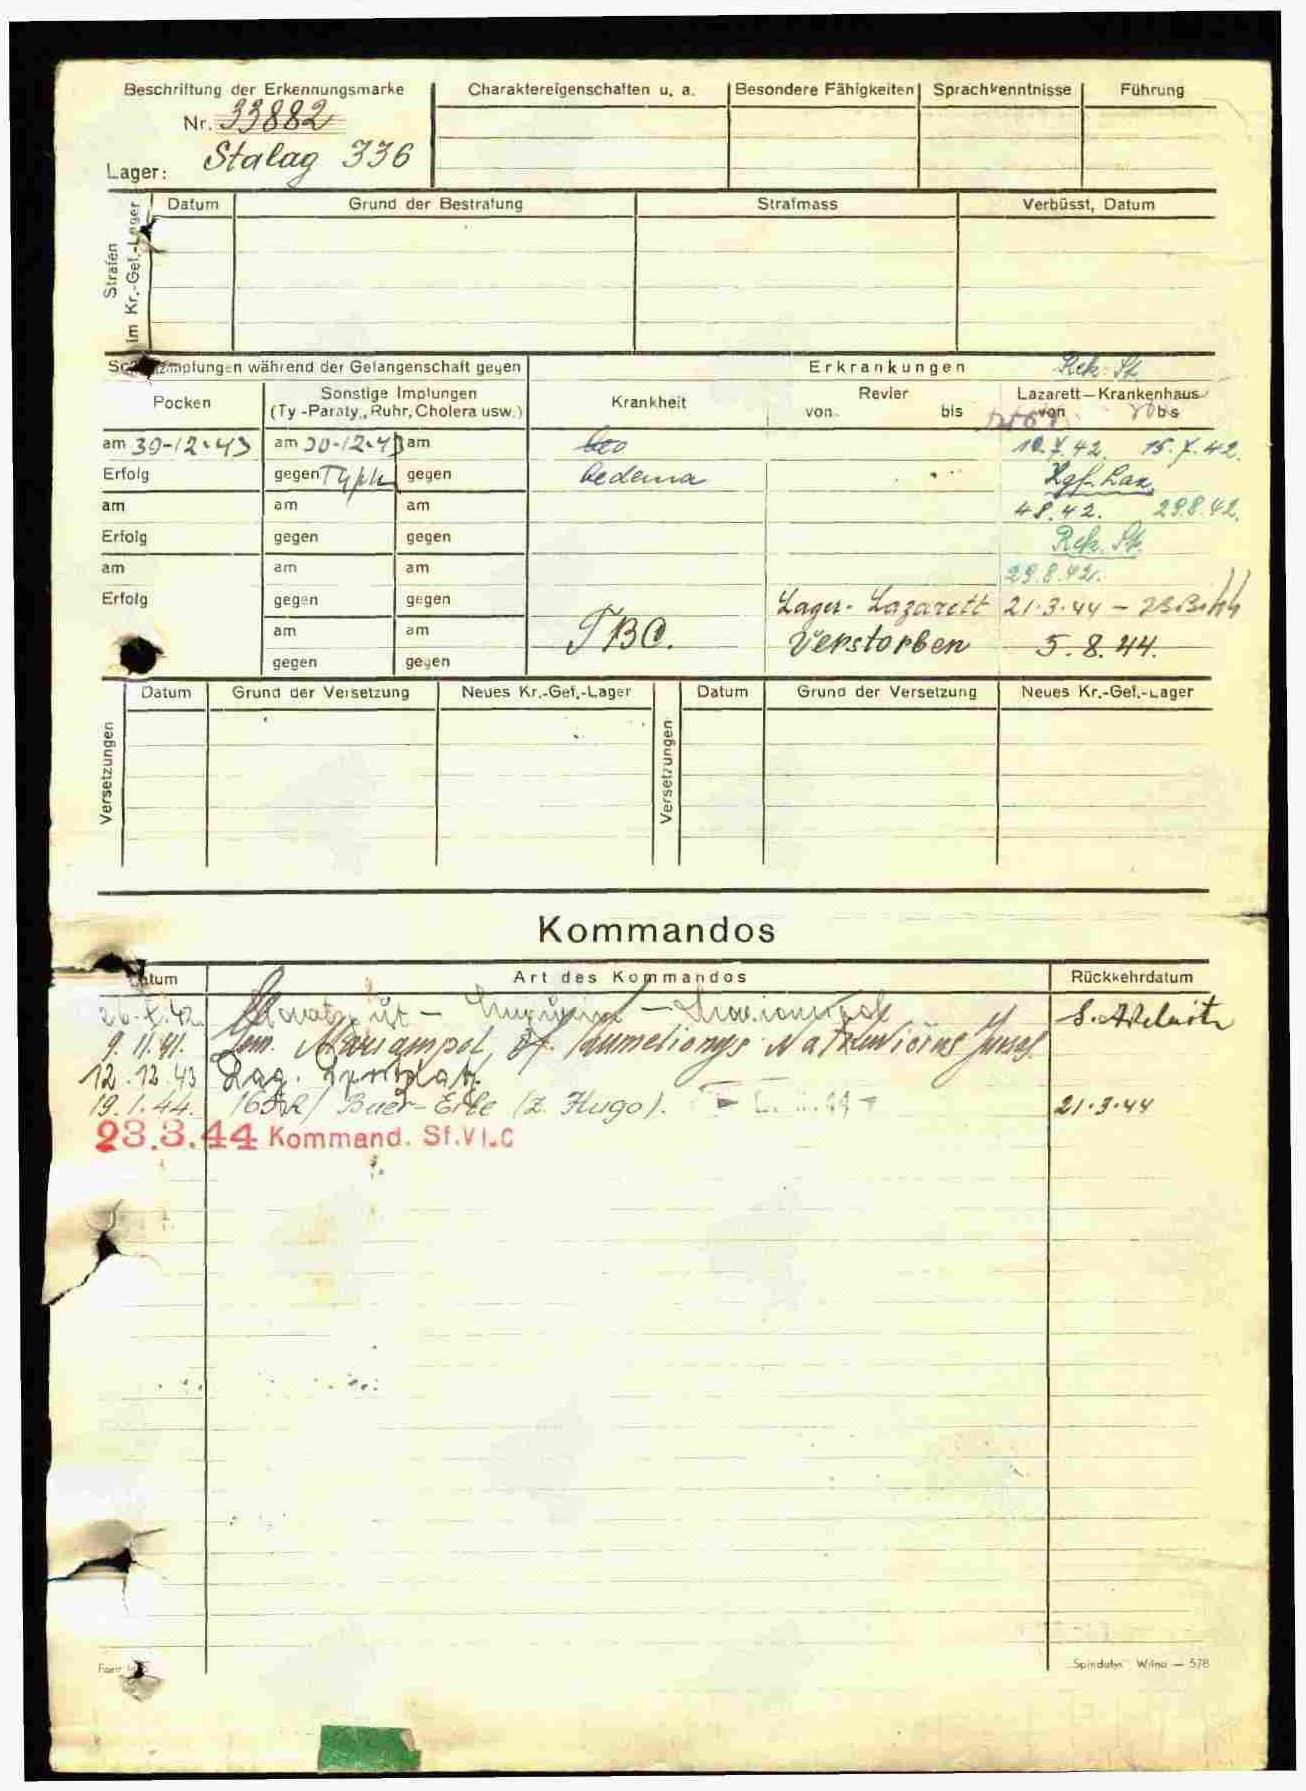 Beschriftung der Erkennungsmarke
Nr. 33882
Lager: Stalag 336
Charaktereigenschaften u. a.
Besondere Fähigkeiten
Sprachkenntnisse
Führung
Strafen im Kr.-Gef.-Lager
Datum
Grund der Bestrafung
Strafmass
Verbüsst, Datum
impfungen während der Gefangenschaft gegen
Erkrankungen
Rek. St.
Pocken
Sonstige Impfungen
(Ty-Paraty., Ruhr, Cholera usw.)
Krankheit
Revier
von bis
Lazarett—Krankenhaus
von bis
am 30-12-43 am 30-12-43 am
10.7.42. 15.7.42.
Erfolg gegen Typh gegen oedema
Kgf. Laz.
am am am 4.8.42. 29.8.42.
Erfolg gegen gegen Rek. St.
am am am 29.8.42.
Erfolg gegen gegen Lager-Lazarett 21.3.44 –
am am TBC. Verstorben 5.8.44.
gegen gegen
Versetzungen
Datum
Grund der Versetzung
Neues Kr.-Gef.-Lager
Versetzungen
Datum
Grund der Versetzung
Neues Kr.-Gef.-Lager
Kommandos
Datum
Art des Kommandos
Rückkehrdatum
9.11.41. Mariampol,
12.12.43 Lag.
19.1.44. Buer-Erle (Z. Hugo). 21.3.44
23.3.44 Kommand. Sf.VI.C
"Spindulys" Wilna — 578